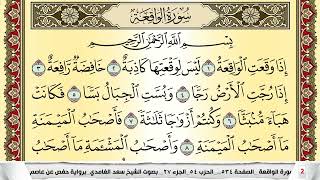 سُورَةُ الْوَاقِعَة
بِسْمِ اللَّهِ الرَّحْمَٰنِ الرَّحِيمِ
إِذَا وَقَعَتِ الْوَاقِعَةُ ١ لَيْسَ لِوَقْعَتِهَا كَاذِبَةٌ ٢ خَافِضَةٌ رَافِعَةٌ ٣
إِذَا رُجَّتِ الْأَرْضُ رَجًّا ٤ وَبُسَّتِ الْجِبَالُ بَسًّا ٥ فَكَانَتْ
هَبَاءً مُنْبَثًّا ٦ وَكُنْتُمْ أَزْوَاجًا ثَلَاثَةً ٧ فَأَصْحَابُ الْمَيْمَنَةِ
مَا أَصْحَابُ الْمَيْمَنَةِ ٨ وَأَصْحَابُ الْمَشْأَمَةِ مَا أَصْحَابُ
2 سورة الواقعة . الصفحة ٥٣٤ .. الحزب ٥٤ الجزء ٢٧ . بصوت الشيخ سعد الغامدي برواية حفص عن عاصم